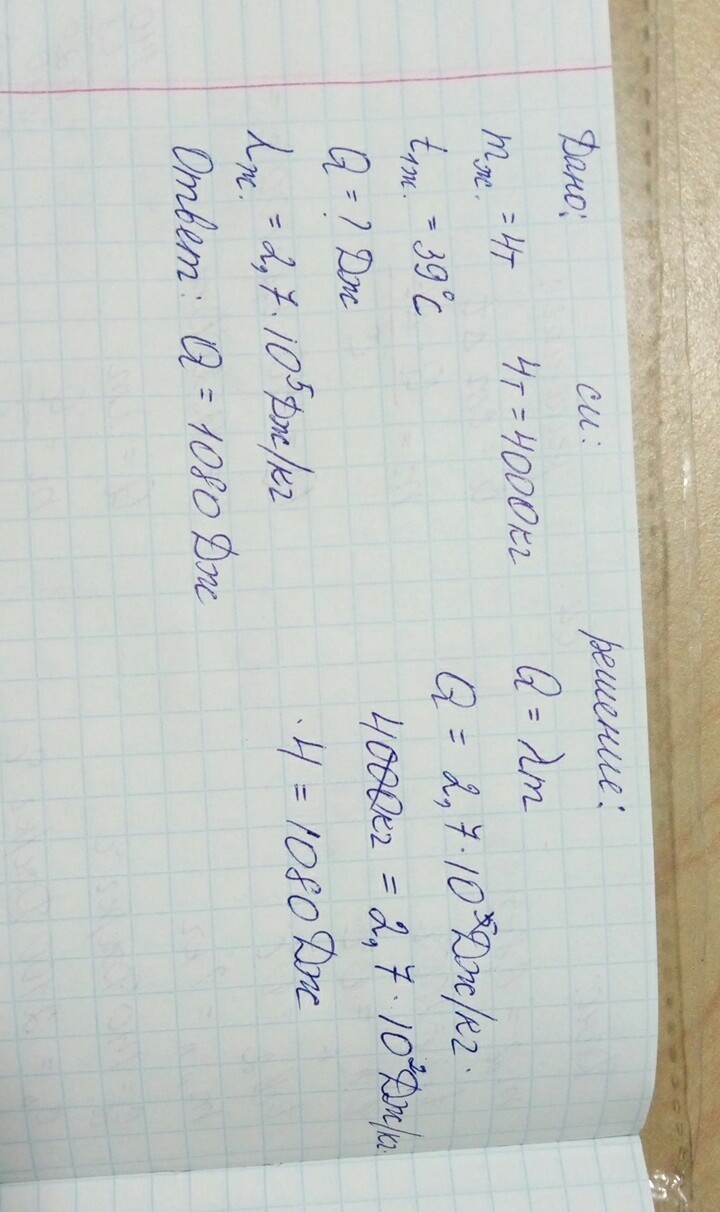 Дано:
mж. = 4т
t1ж. = 39°С
Q = ? Дж
λж. = 2,7·10⁵ Дж/кг
Ответ: Q = 1080 Дж
си:
4т = 4000кг
решение:
Q = λm
Q = 2,7·10⁵ Дж/кг·
4000кг = 2,7·10² Дж/кг·
·4 = 1080 Дж